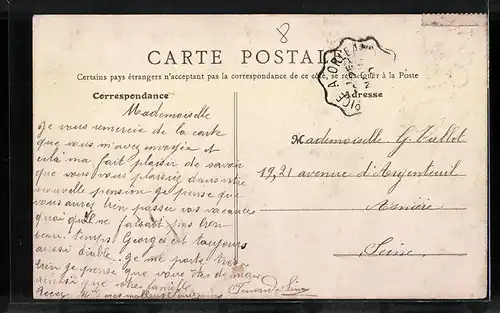 8
CARTE POSTALE
Certains pays étrangers n'acceptant pas la correspondance de ce côté, se renseigner à la Poste
Correspondance
Adresse
Mademoiselle
Je vous remercie de la carte
que vous m'avez envoyée et
cela ma fait plaisir de savoir
que vous vous plaisiez dans votre
nouvelle pension je pense que
vous aurez bien passer vos vacances
quoi qu'il ne faisait pas bien
beau temps Georges est toujours
aussi diable. Je me porte très
bien je pense que vous êtes de même
ainsi que votre famille
Mademoiselle G.
19,21 avenue d'Argenteuil
Asnière
Seine